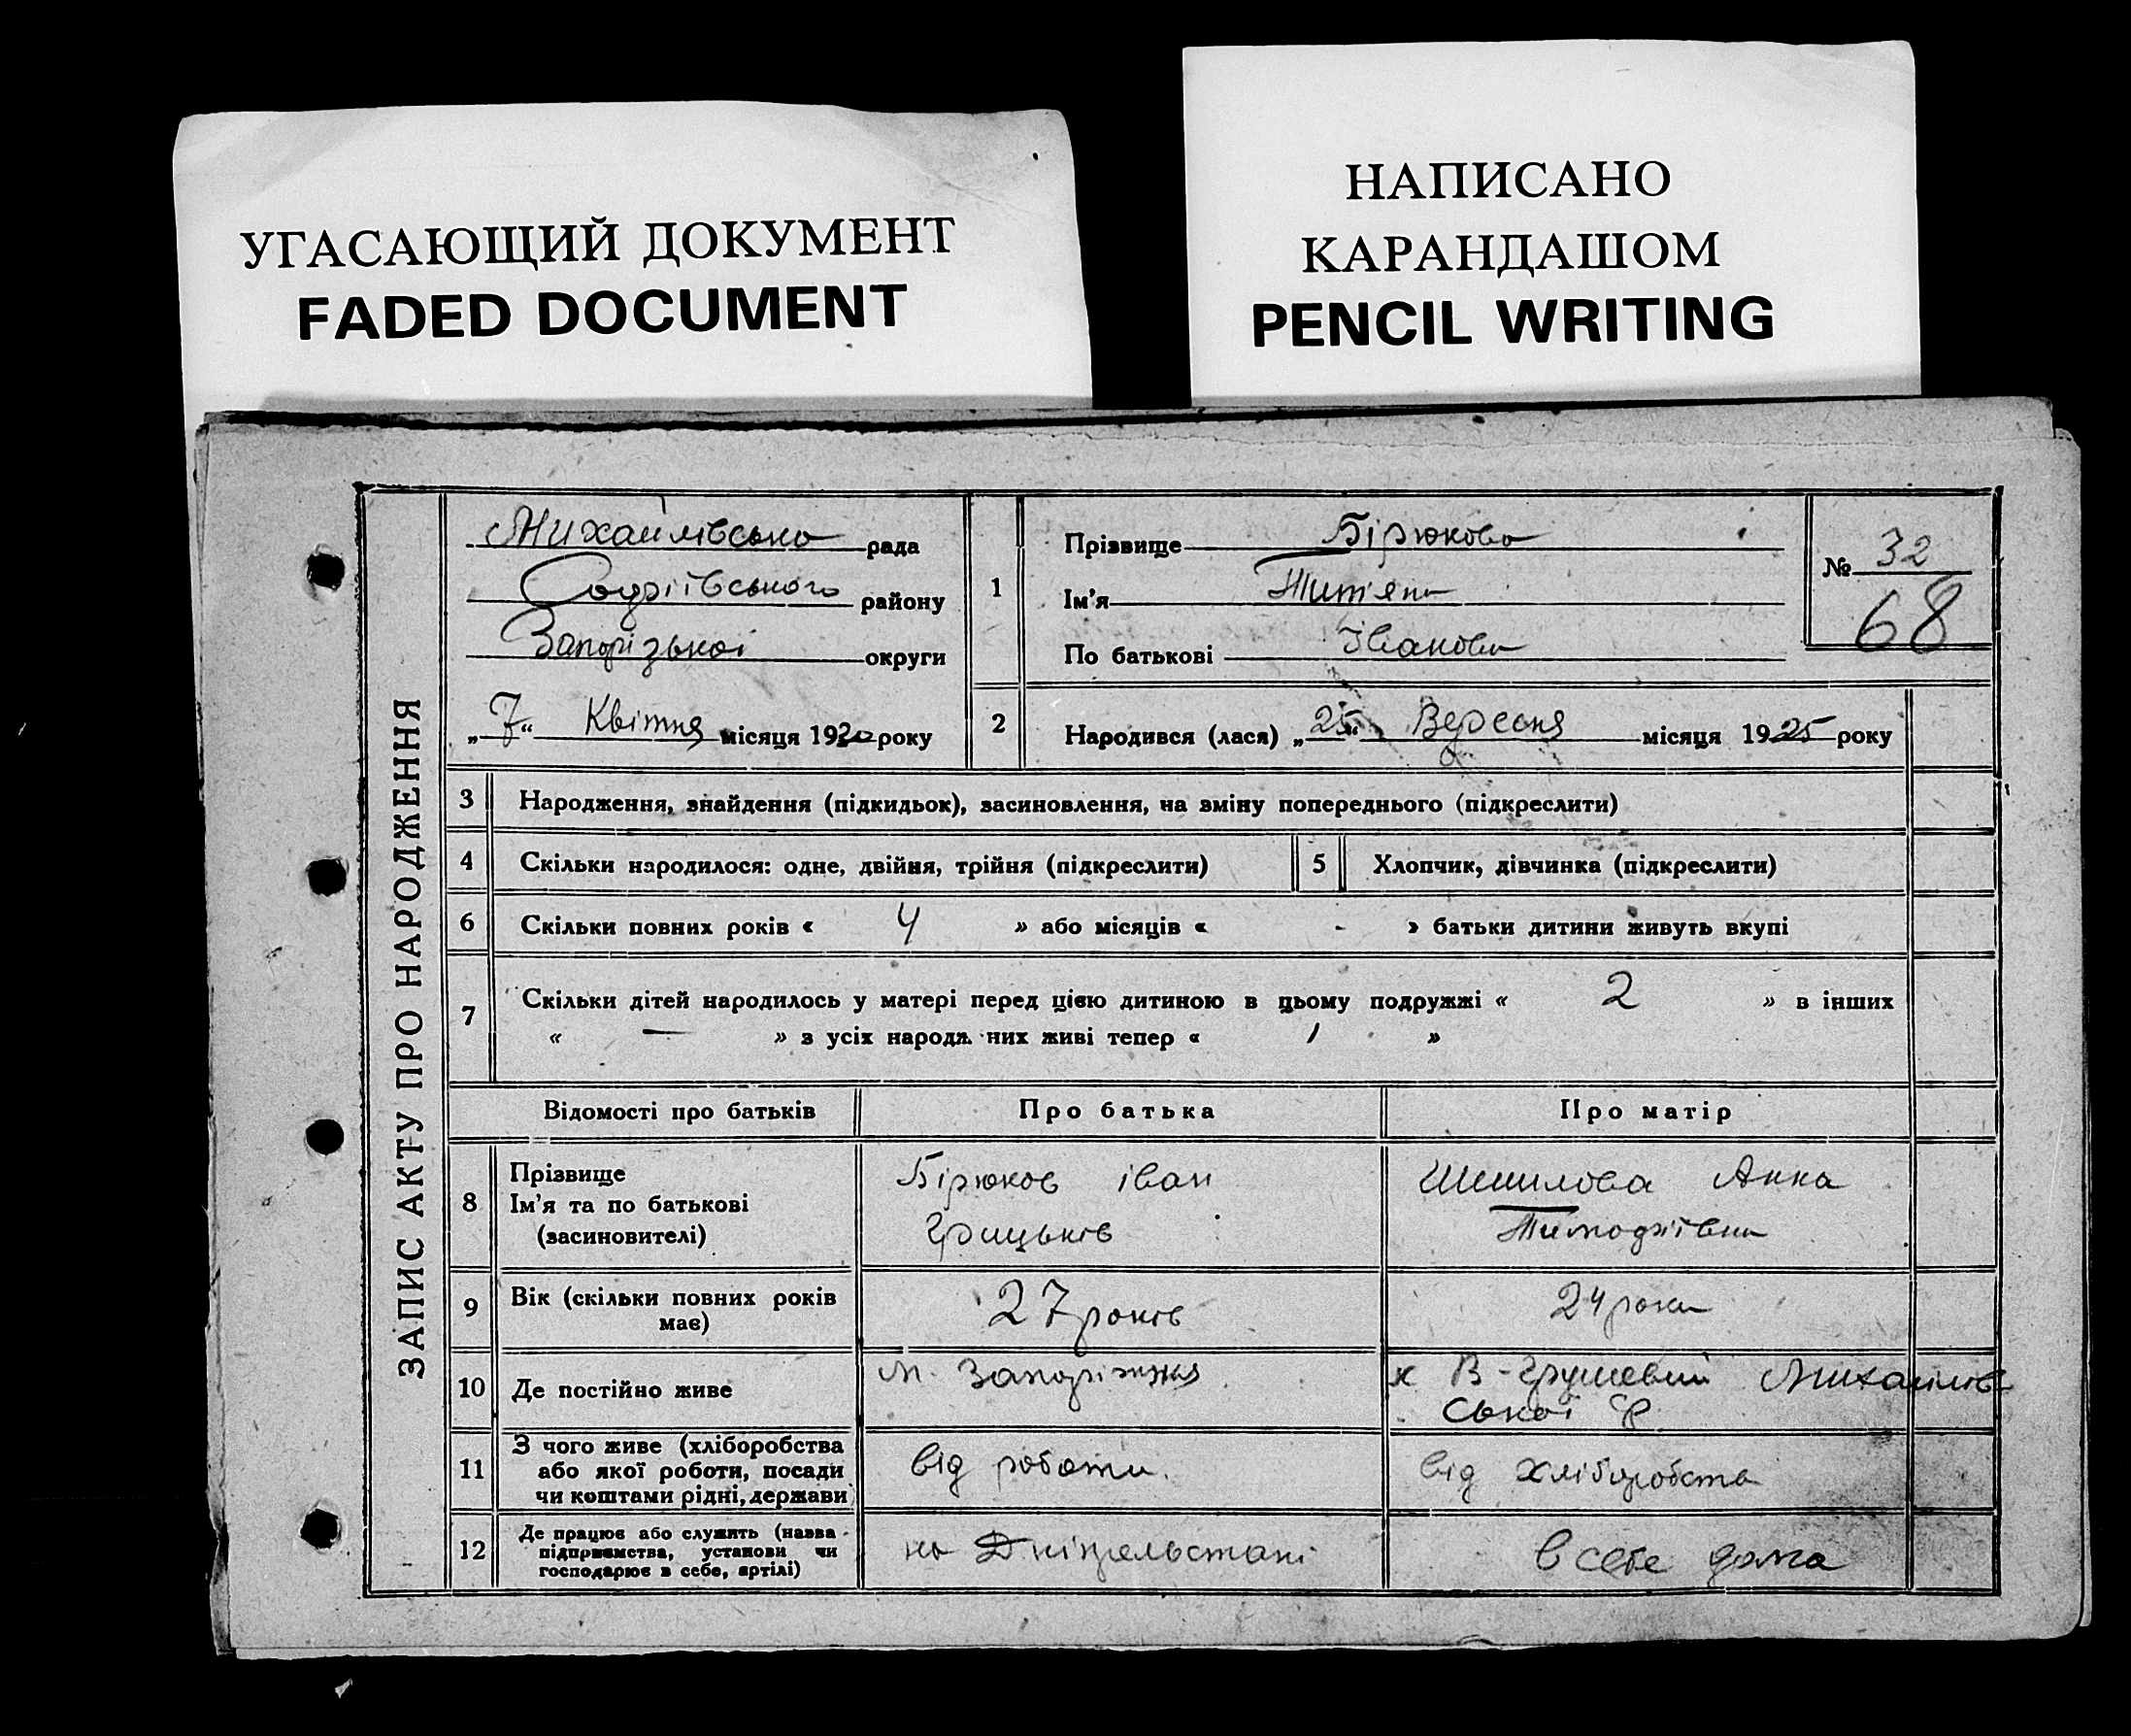 УГАСАЮЩИЙ ДОКУМЕНТ
FADED DOCUMENT
НАПИСАНО
КАРАНДАШОМ
PENCIL WRITING
ЗАПИС АКТУ ПРО НАРОДЖЕННЯ
Михайлівська рада
Софіївського району
Запорізької округи
„7“ Квітня місяця 1930 року
1
Прізвище Бірюкова
Ім'я Титяна
По батькові Іванова
№ 32
68
2
Народився (лася) „25“ Вересня місяця 1925 року
3 Народження, знайдення (підкидьок), засиновлення, на зміну попереднього (підкреслити)
4 Скільки народилося: одне, двійня, трійня (підкреслити) 5 Хлопчик, дівчинка (підкреслити)
6 Скільки повних років « 4 » або місяців « - » батьки дитини живуть вкупі
7 Скільки дітей народилось у матері перед цією дитиною в цьому подружжі « 2 » в інших
« — » з усіх народж них живі тепер « 1 »
Відомості про батьків Про батька Про матір
8 Прізвище
Ім'я та по батькові
(засиновителі)
Бірюков іван
Грицьків
Шишлова Анна
Тимофіївна
9 Вік (скільки повних років
має)
27 років
24 роки
10 Де постійно живе
м. Запоріжжя
х В-Грушевий Михайлів-
ської
11 З чого живе (хліборобства
або якої роботи, посади
чи коштами рідні, держави
від роботи.
від хліборобства
12 Де працює або служить (назва
підприємства, установи чи
господарює в себе, артілі)
на Дніпрельстані
в себе дома